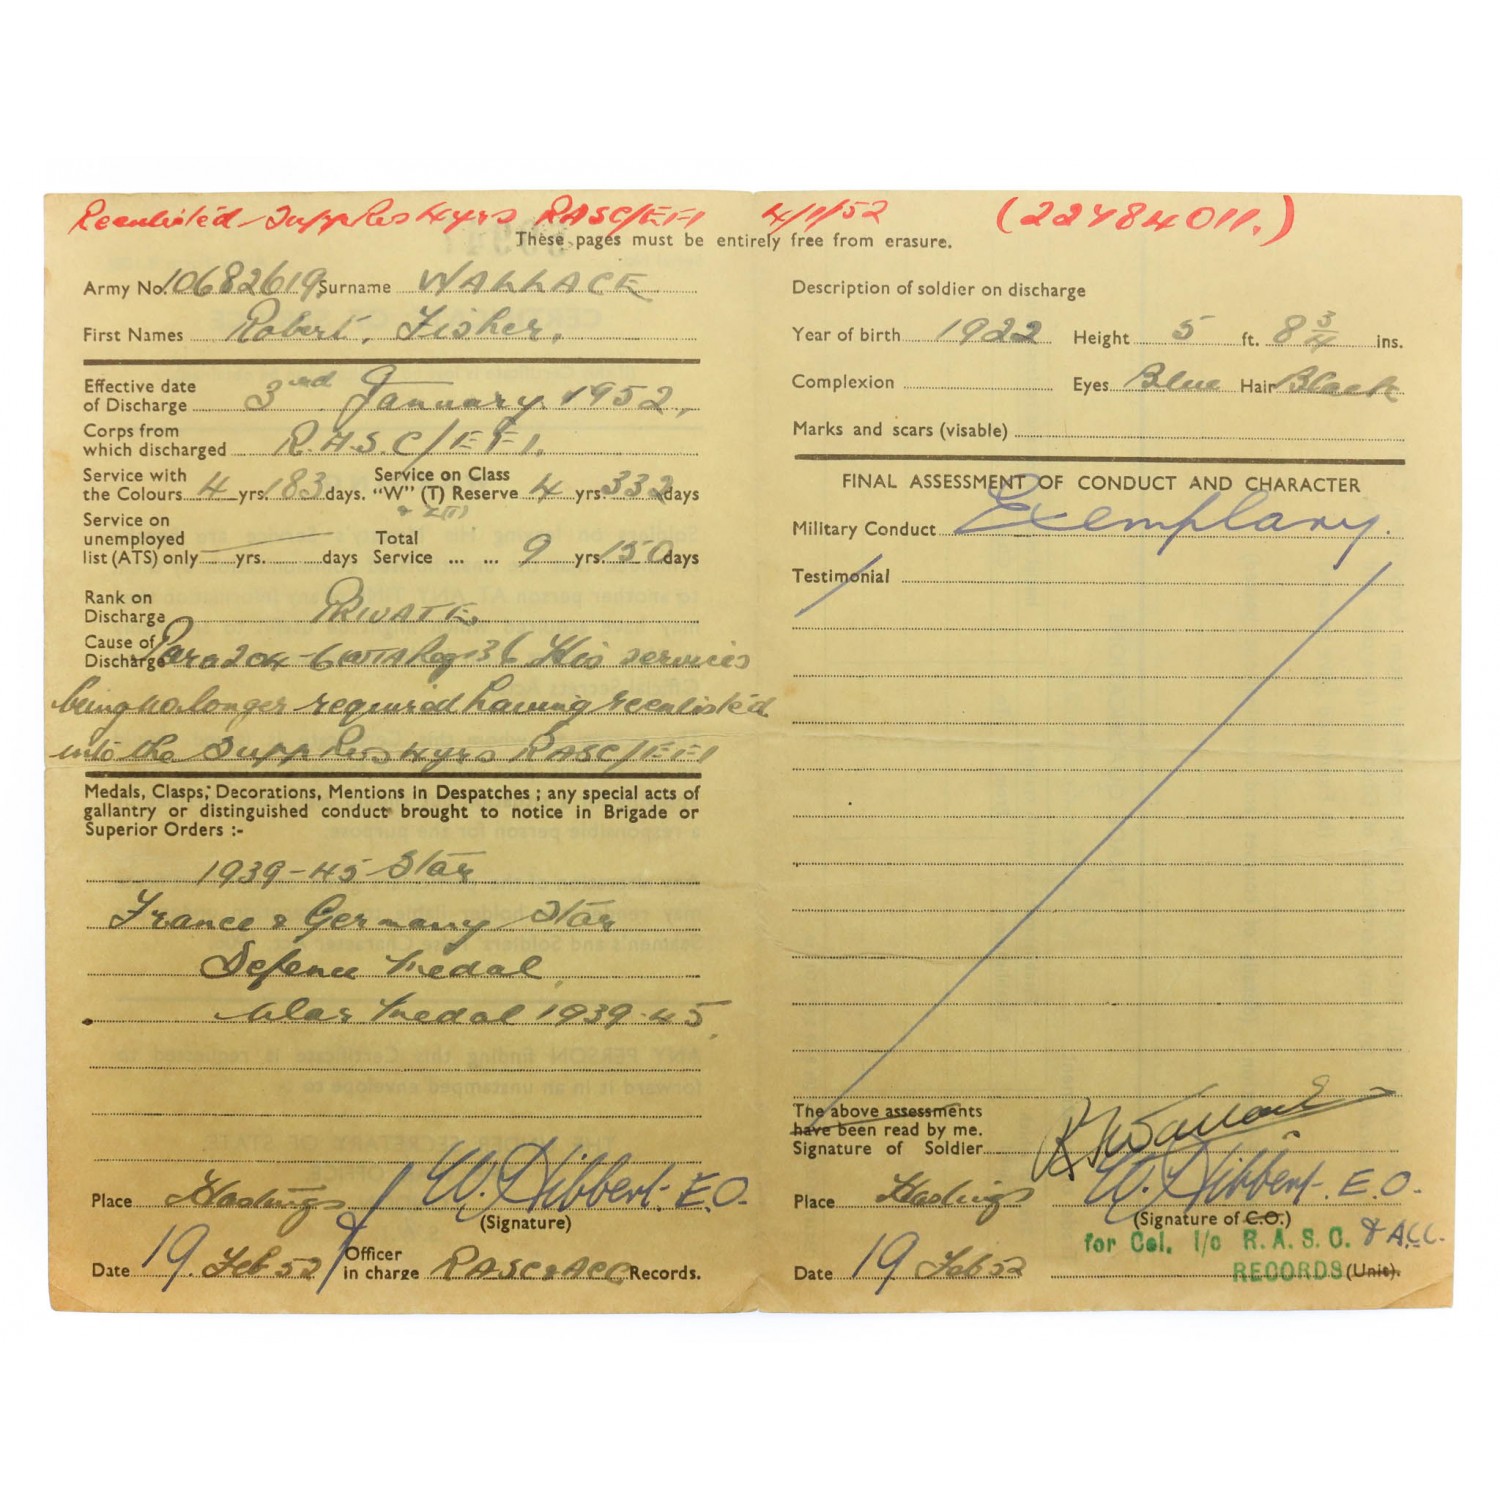 Reenlisted Supp Res 4 yrs RASC/EFI 4/1/52 (22784011.)
These pages must be entirely free from erasure.
Army No. 10682619 Surname WALLACE
First Names Robert, Fisher.
Effective date
of Discharge 3rd January 1952.
Corps from
which discharged R.A.S.C/EFI.
Service with
the Colours 4 yrs. 183 days. Service on Class
"W" (T) Reserve 4 yrs. 332 days
& Z(T)
Service on
unemployed
list (ATS) only yrs. days Total
Service ... ... 9 yrs. 150 days
Rank on
Discharge PRIVATE.
Cause of
Discharge Para 204 - 6 Regs 36 His services
being no longer required having reenlisted
into the Supp Res 4 yrs RASC/EFI
Medals, Clasps, Decorations, Mentions in Despatches ; any special acts of
gallantry or distinguished conduct brought to notice in Brigade or
Superior Orders :-
1939-45 Star
France & Germany Star
Defence Medal
War Medal 1939-45
Place Hastings W. Hibbert. E.O.
(Signature)
Date 19 Feb 52 Officer
in charge RASC & ACC Records.
Description of soldier on discharge
Year of birth 1922 Height 5 ft. 8 3/4 ins.
Complexion Eyes Blue Hair Black
Marks and scars (visable)
FINAL ASSESSMENT OF CONDUCT AND CHARACTER
Military Conduct Exemplary.
Testimonial
The above assessments
have been read by me.
Signature of Soldier R F Wallace
Place Hastings W. Hibbert. E.O.
(Signature of C.O.)
for Col. I/c R.A.S.C. & A.C.C.
Date 19 Feb 52 RECORDS (Unit).